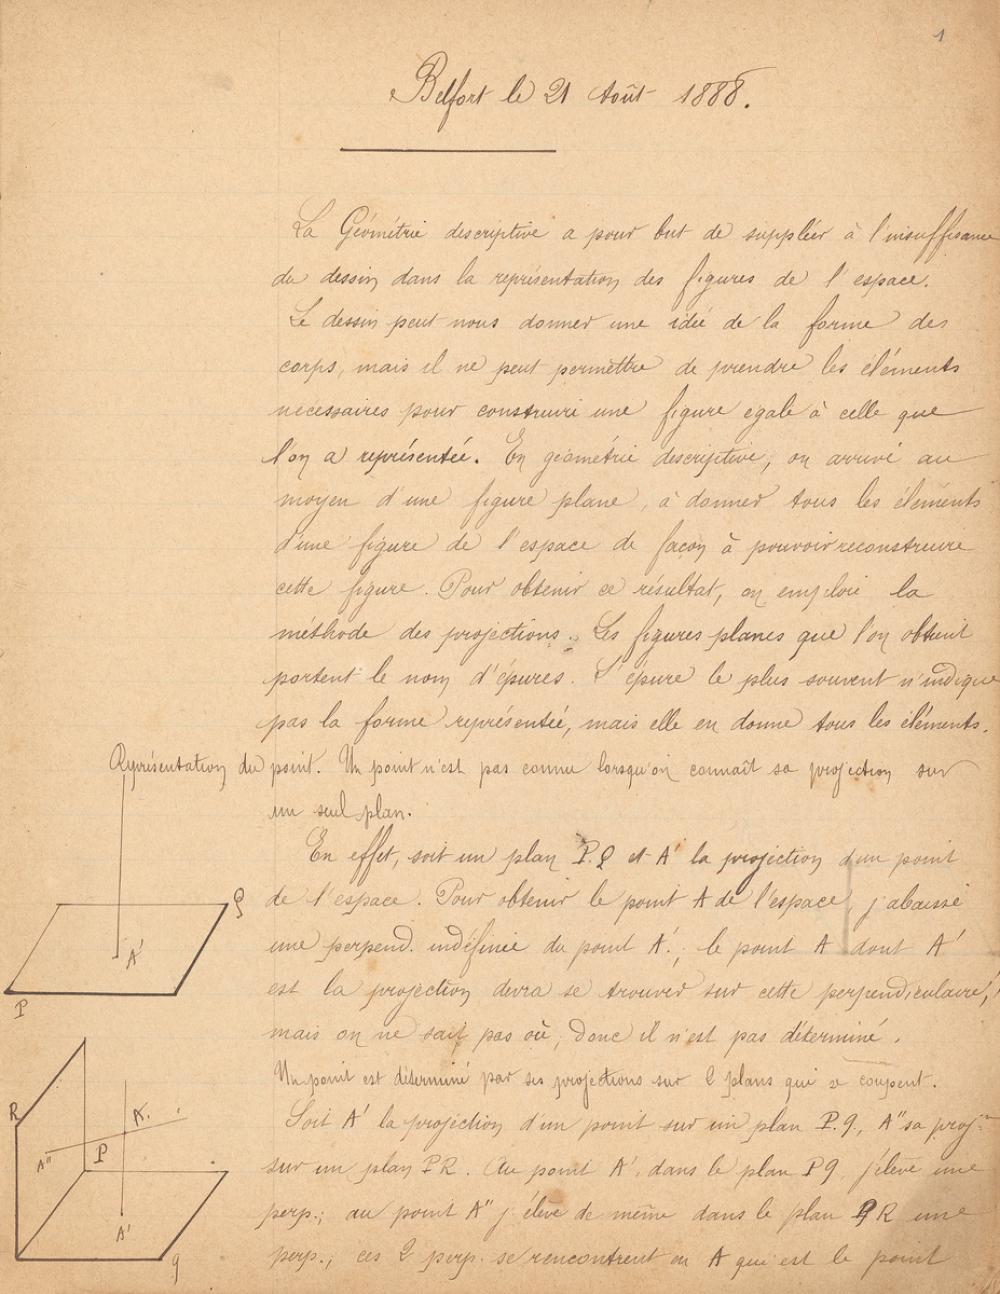 1
Belfort le 21 Août 1888.
La Géométrie descriptive a pour but de suppléer à l'insuffisance
du dessin dans la représentation des figures de l'espace.
Le dessin peut nous donner une idée de la forme des
corps, mais il ne peut permettre de prendre les éléments
nécessaires pour construire une figure égale à celle que
l'on a représentée. En géométrie descriptive, on arrive au
moyen d'une figure plane, à donner tous les éléments
d'une figure de l'espace de façon à pouvoir reconstruire
cette figure. Pour obtenir ce résultat, on emploie la
méthode des projections. Les figures planes que l'on obtient
portent le nom d'épures. L'épure le plus souvent n'indique
pas la forme représentée, mais elle en donne tous les éléments.
Représentation du point. Un point n'est pas connu lorsqu'on connaît sa projection sur
un seul plan.
En effet, soit un plan P.Q et A' la projection d'un point
de l'espace. Pour obtenir le point A de l'espace, j'abaisse
une perpend. indéfinie du point A'; le point A dont A'
est la projection devra se trouver sur cette perpendiculaire,
mais on ne sait pas où, donc il n'est pas déterminé.
Un point est déterminé par ses projections sur 2 plans qui se coupent.
Soit A' la projection d'un point sur un plan P.q, A'' sa proj.on
sur un plan PR. Au point A', dans le plan Pq j'élève une
perp.; au point A'' j'élève de même dans le plan PR une
perp.; ces 2 perp. se rencontrent en A qui est le point
Q
A'
P
R
A.
A''
P
A'
q